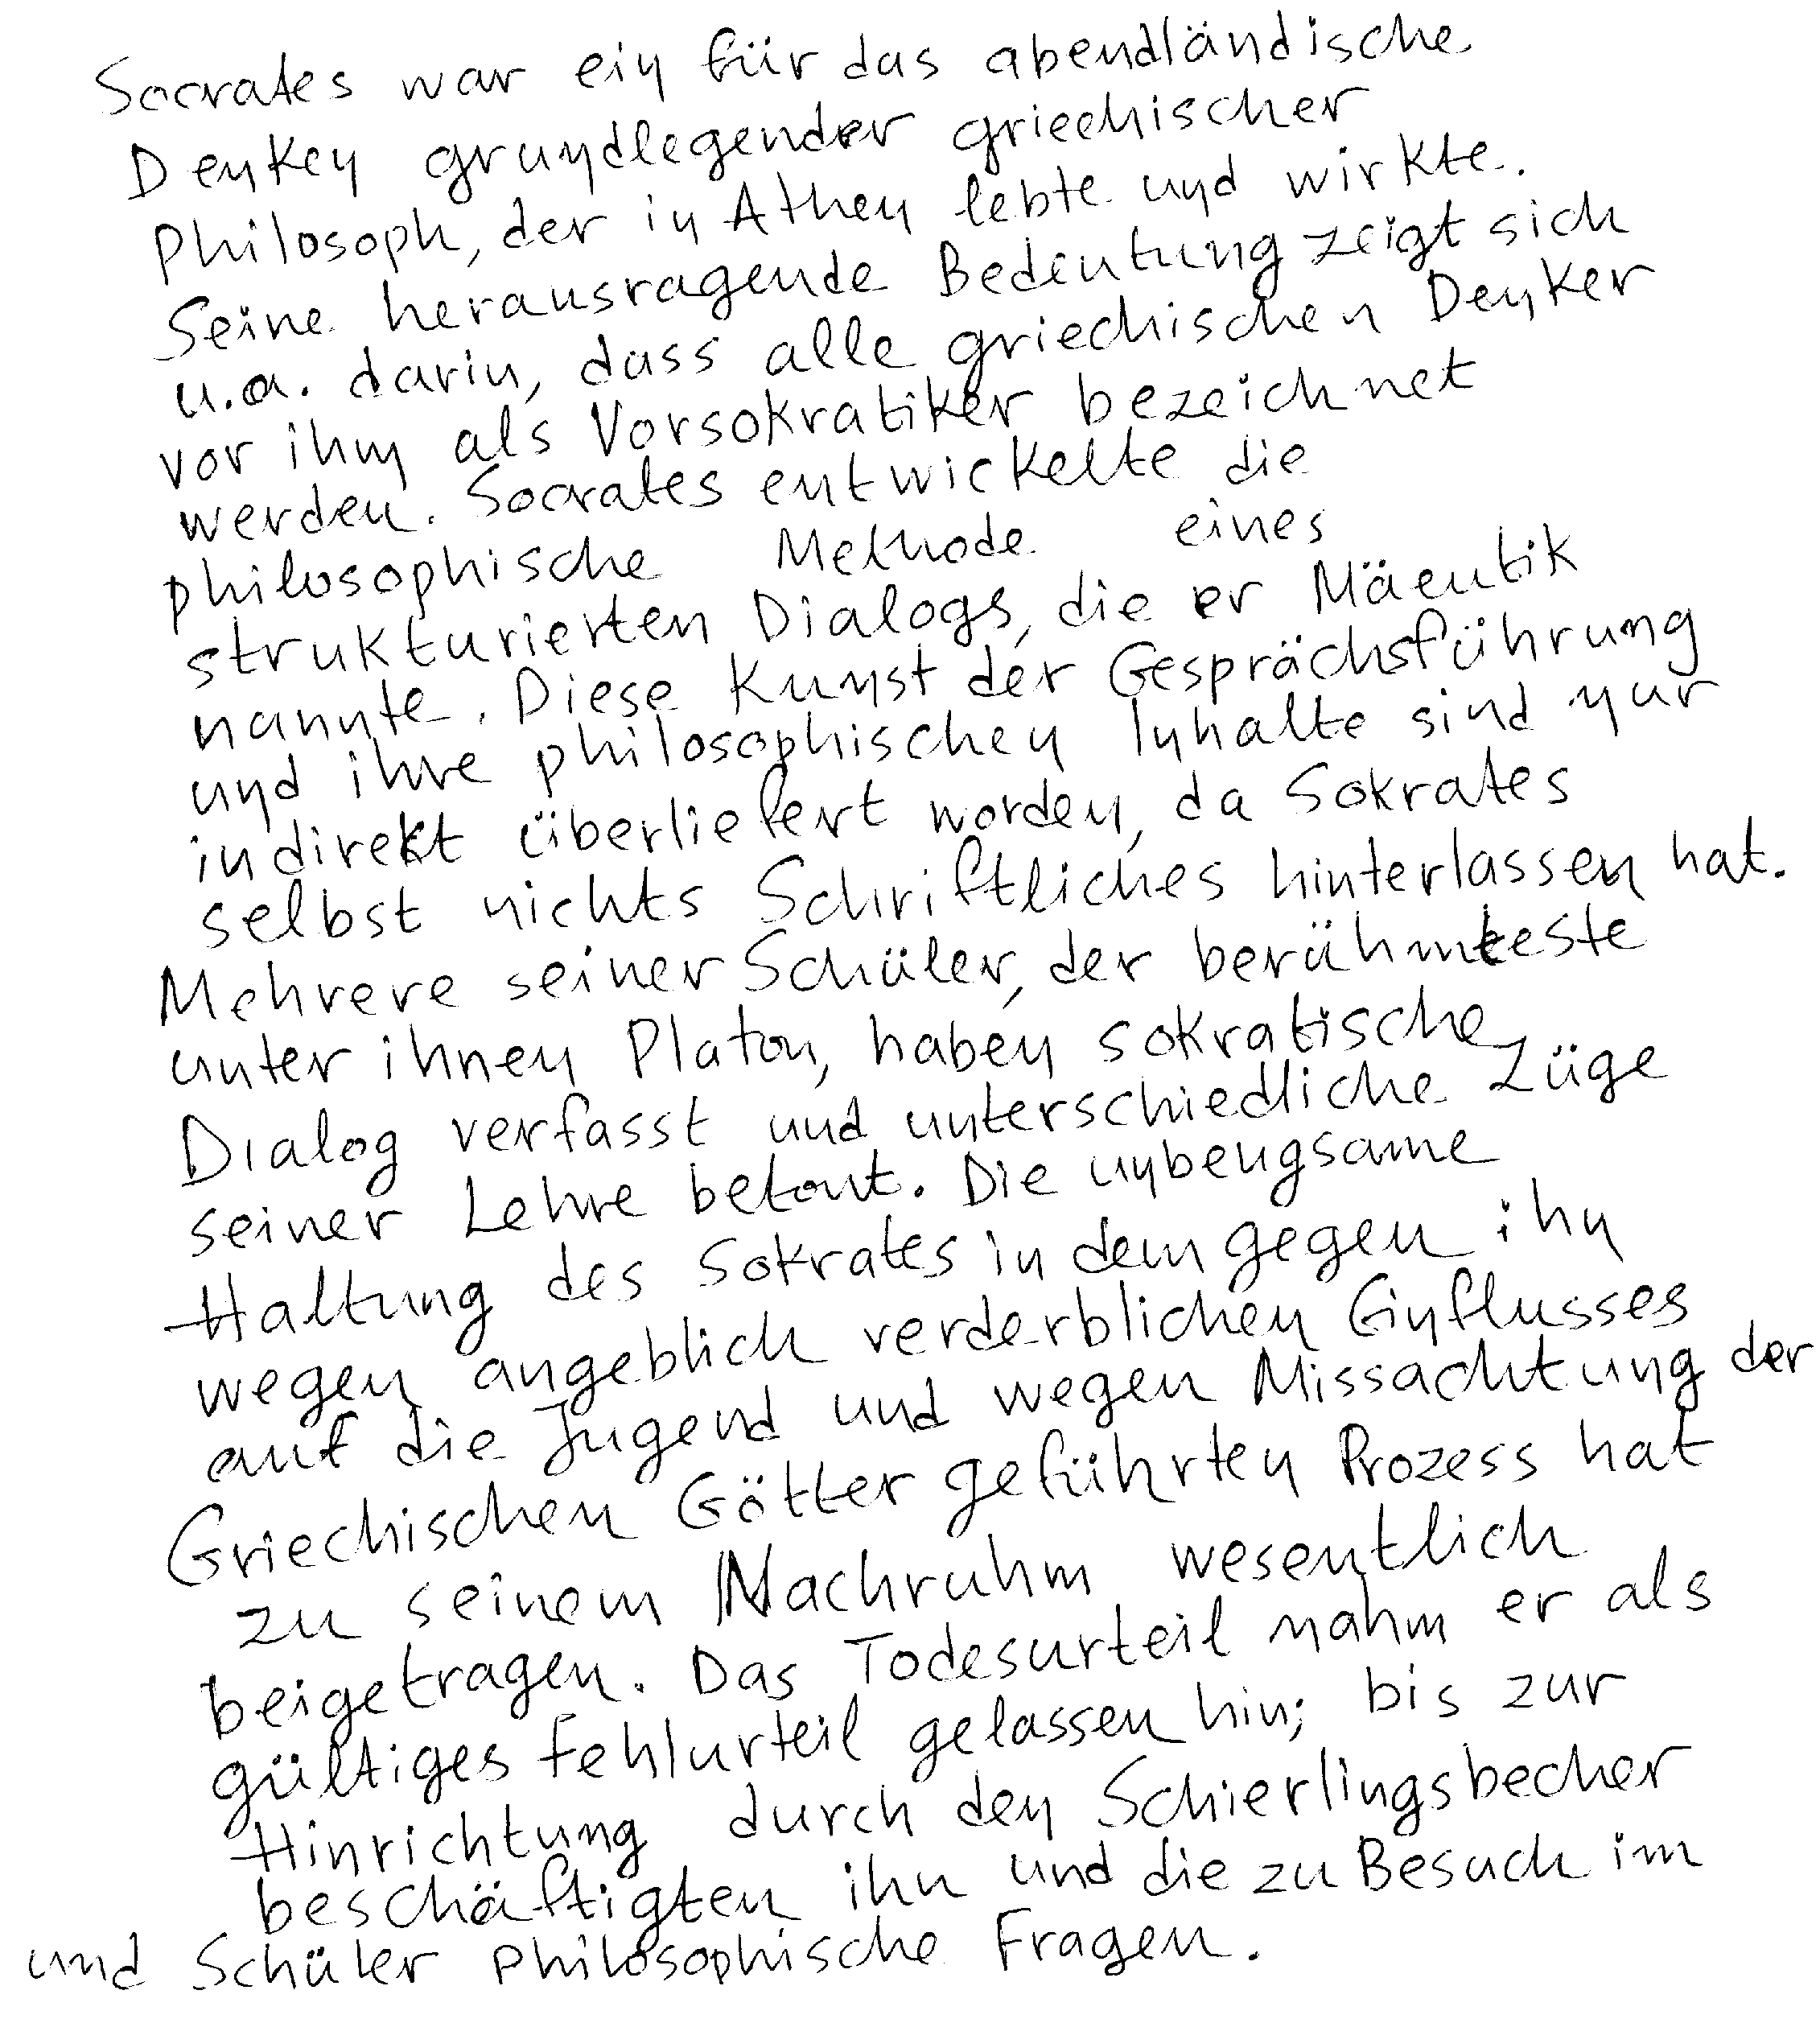 Socrates war ein für das abendländische
Denken grundlegender griechischer
Philosoph, der in Athen lebte und wirkte.
Seine herausragende Bedeutung zeigt sich
u.a. darin, dass alle griechischen Denker
vor ihm als Vorsokratiker bezeichnet
werden. Socrates entwickelte die
philosophische Methode eines
strukturierten Dialogs, die er Mäeutik
nannte. Diese Kunst der Gesprächsführung
und ihre philosophischen Inhalte sind nur
indirekt überliefert worden, da Sokrates
selbst nichts Schriftliches hinterlassen hat.
Mehrere seiner Schüler, der berühmteste
unter ihnen Platon, haben sokratische
Dialog verfasst und unterschiedliche Züge
seiner Lehre betont. Die unbeugsame
Haltung des Sokrates in dem gegen ihn
wegen angeblich verderblichen Einflusses
auf die Jugend und wegen Missachtung der
Griechischen Götter geführten Prozess hat
zu seinem Nachruhm wesentlich
beigetragen. Das Todesurteil nahm er als
gültiges Fehlurteil gelassen hin; bis zur
Hinrichtung durch den Schierlingsbecher
beschäftigten ihn und die zu Besuch im
und Schüler philosophische Fragen.